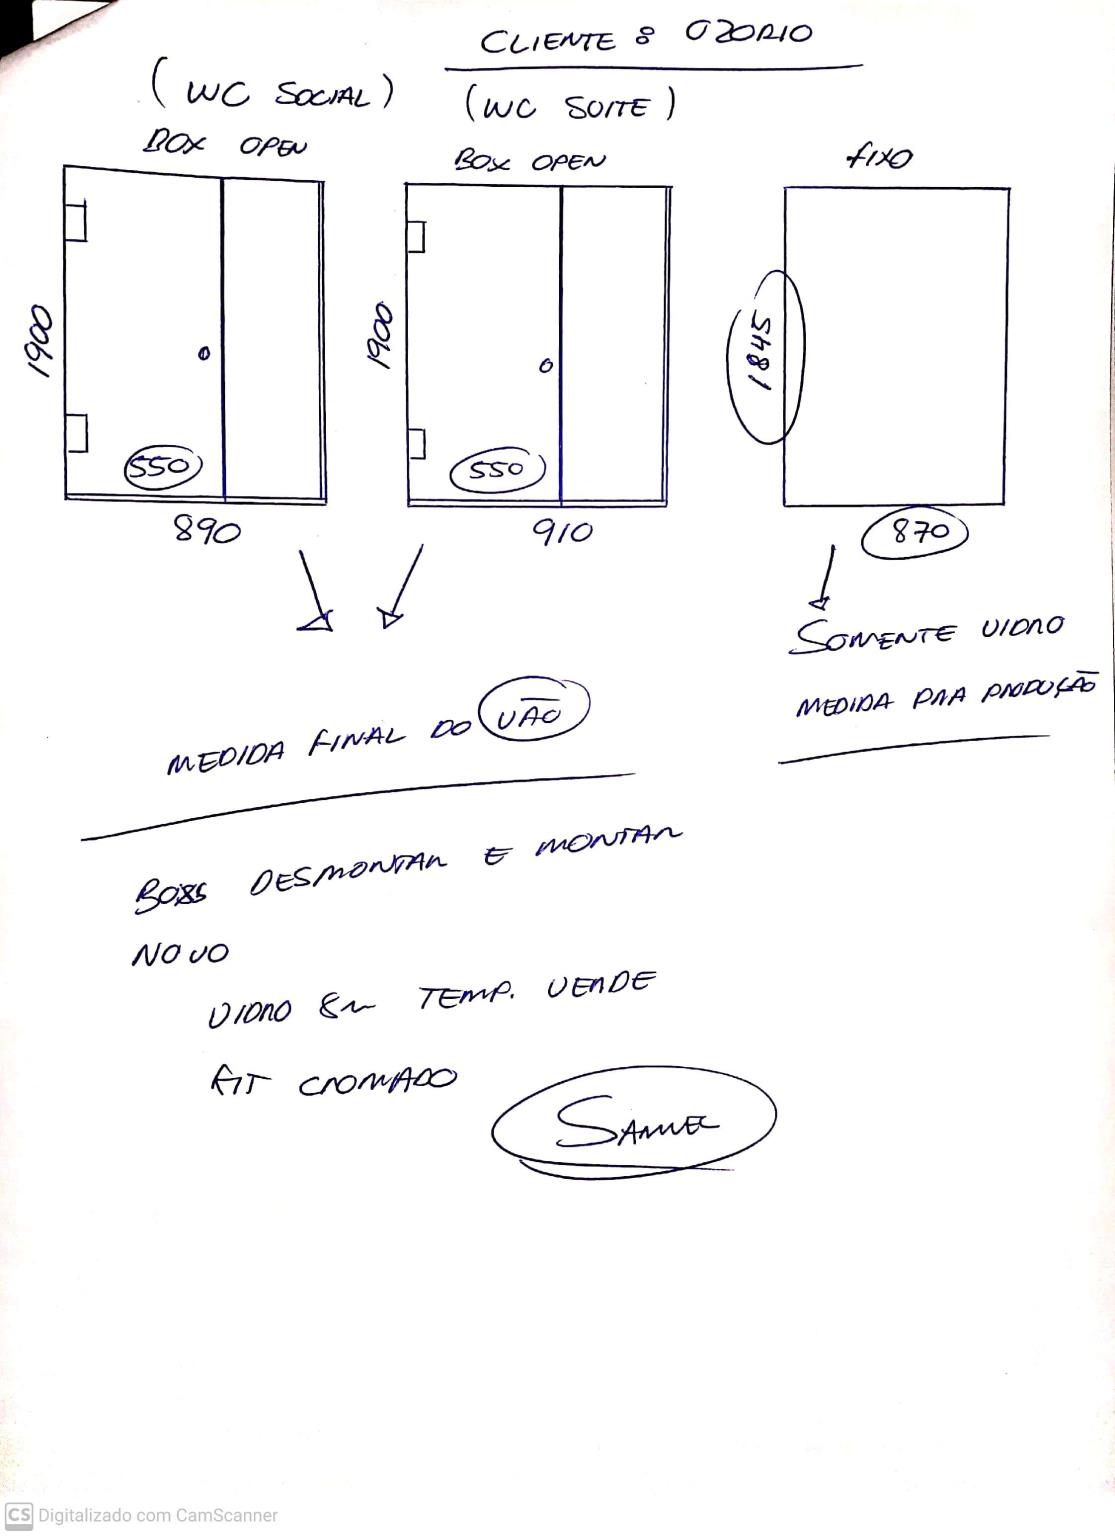 CLIENTE : OZORIO
(WC SOCIAL)
BOX OPEN
1900
550
890
(WC SUITE)
BOX OPEN
1900
550
910
FIXO
1845
870
SOMENTE VIDRO
MEDIDA PRA PRODUÇÃO
MEDIDA FINAL DO VÃO
DESMONTAR E MONTAR
NOVO
VIDRO 8M TEMP. VERDE
KIT CROMADO
SAMUEL
CS Digitalizado com CamScanner